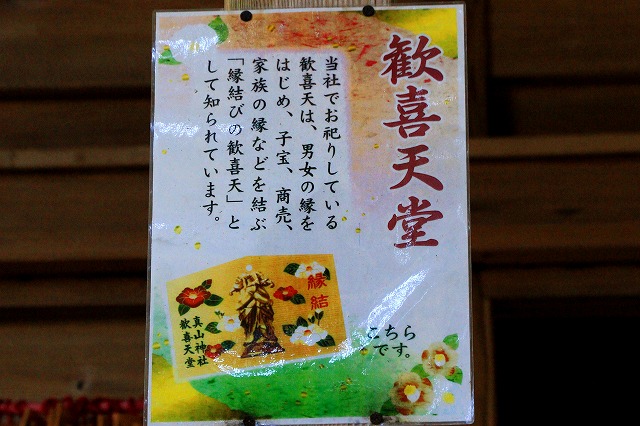 歓喜天堂
当社でお祀りしている
歓喜天は、男女の縁を
はじめ、子宝、商売、
家族の縁などを結ぶ
「縁結びの歓喜天」と
して知られています。
縁結
真山神社
歓喜天堂
こちら
です。